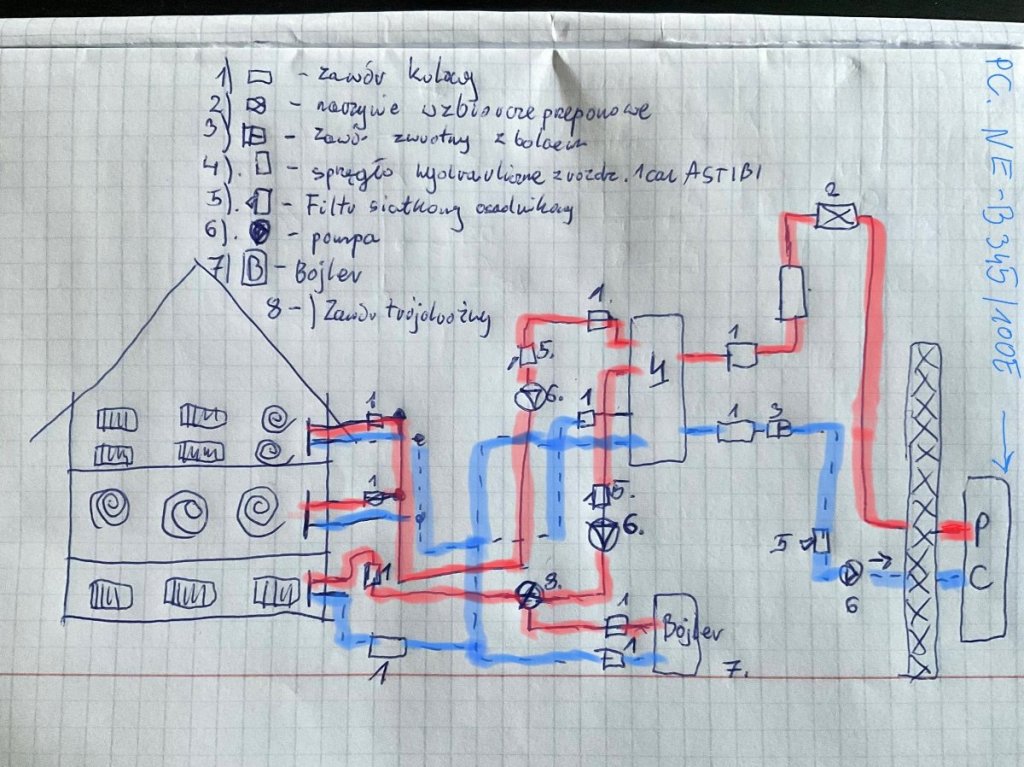 1) - zawór kulowy
2) - naczynie wzbiorcze preponowe
3) - zawór zwrotny z
4). - sprzęgło hydrauliczne z rozdz. 1 cal ASTIBI
5). - Filtr siatkowy osadnikowy
6). - pompa
7) B - Bojler
8 - ) Zawór trójdrożny
PC. NE-B345/100E →
2
1.
5.
6.
1
4
1
1
3
1
1
1
5.
6.
5
6
P
C
1
8.
1
1
Bojler
7.
1